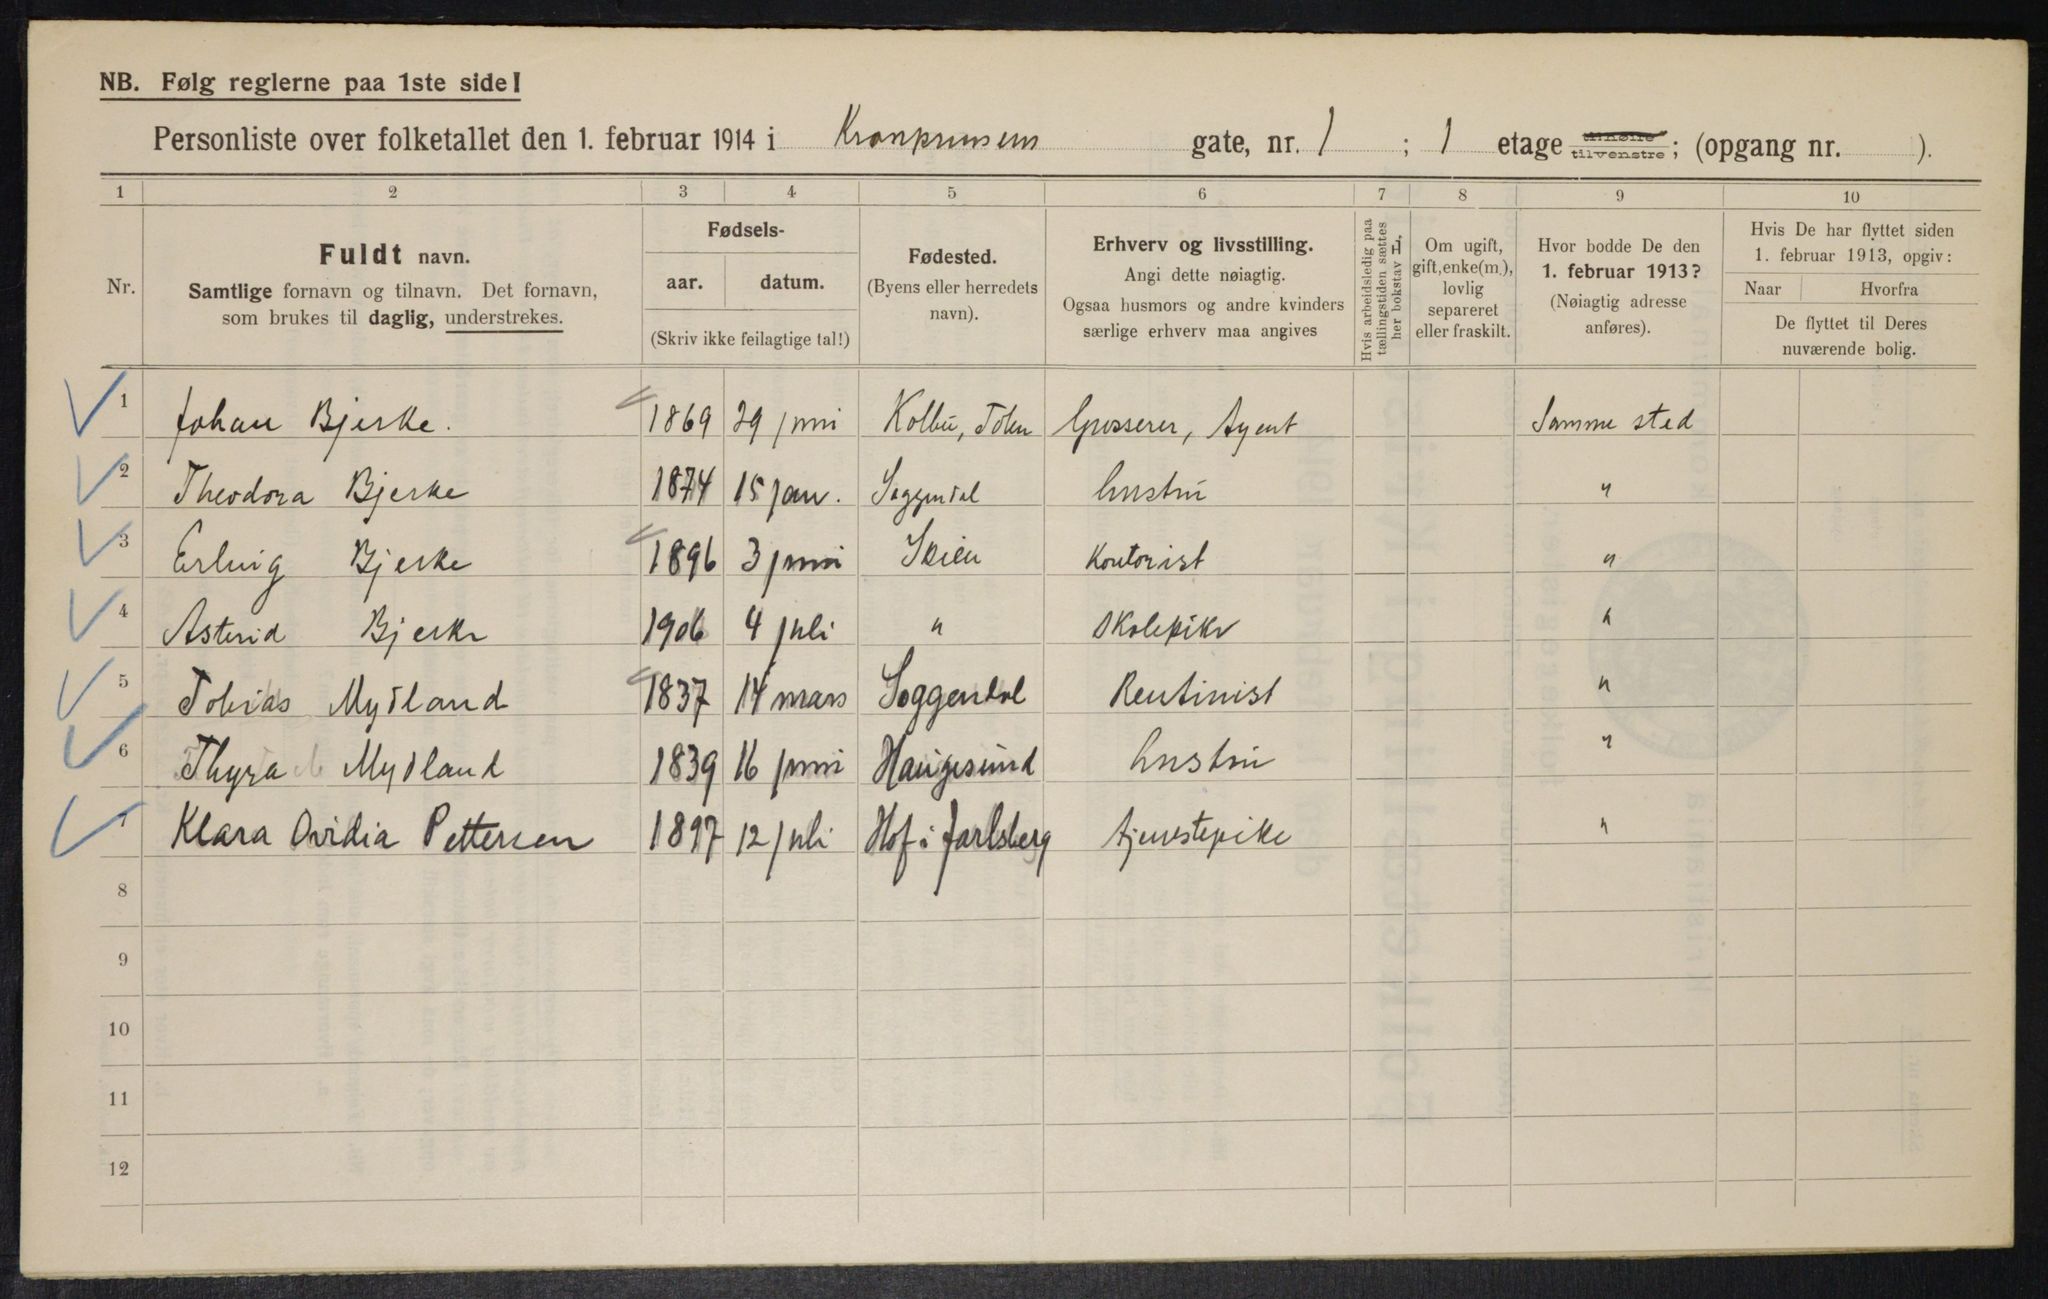 NB. Følg reglerne paa 1ste side!
Personliste over folketallet den 1. februar 1914 i Kronprinsens gate, nr. 1 ; 1 etage tilhøire tilvenstre; (opgang nr. ).
1 2 3 4 5 6 7 8 9 10
Nr.
Fuldt navn.
Samtlige fornavn og tilnavn. Det fornavn,
som brukes til daglig, understrekes.
Fødsels-
aar. datum.
(Skriv ikke feilagtige tal!)
Fødested.
(Byens eller herredets
navn).
Erhverv og livsstilling.
Angi dette nøiagtig.
Ogsaa husmors og andre kvinders
særlige erhverv maa angives
Hvis arbeidsledig paa
tællingstiden sættes
her bokstav L.
Om ugift,
gift, enke(m.),
lovlig
separeret
eller fraskilt.
Hvor bodde De den
1. februar 1913?
(Nøiagtig adresse
anføres).
Hvis De har flyttet siden
1. februar 1913, opgiv:
Naar Hvorfra
De flyttet til Deres
nuværende bolig.
1 Johan Bjerke. 1869 29 juni Kolbu, Toten Grosserer, Agent Samme sted
2 Theodora Bjerke 1874 15 jan. Soggendal hustru "
3 Erling Bjerke 1896 3 juni Skien Kontorist "
4 Astrid Bjerke 1906 4 juli " Skolepike "
5 Tobias Mydland 1837 14 mars Soggendal Rentinist "
6 Thyra Mydland 1839 16 juni Haugesund hustru "
7 Klara Ovidia Pettersen 1897 12 juli Hof i Jarlsberg tjenestepike "
8
9
10
11
12